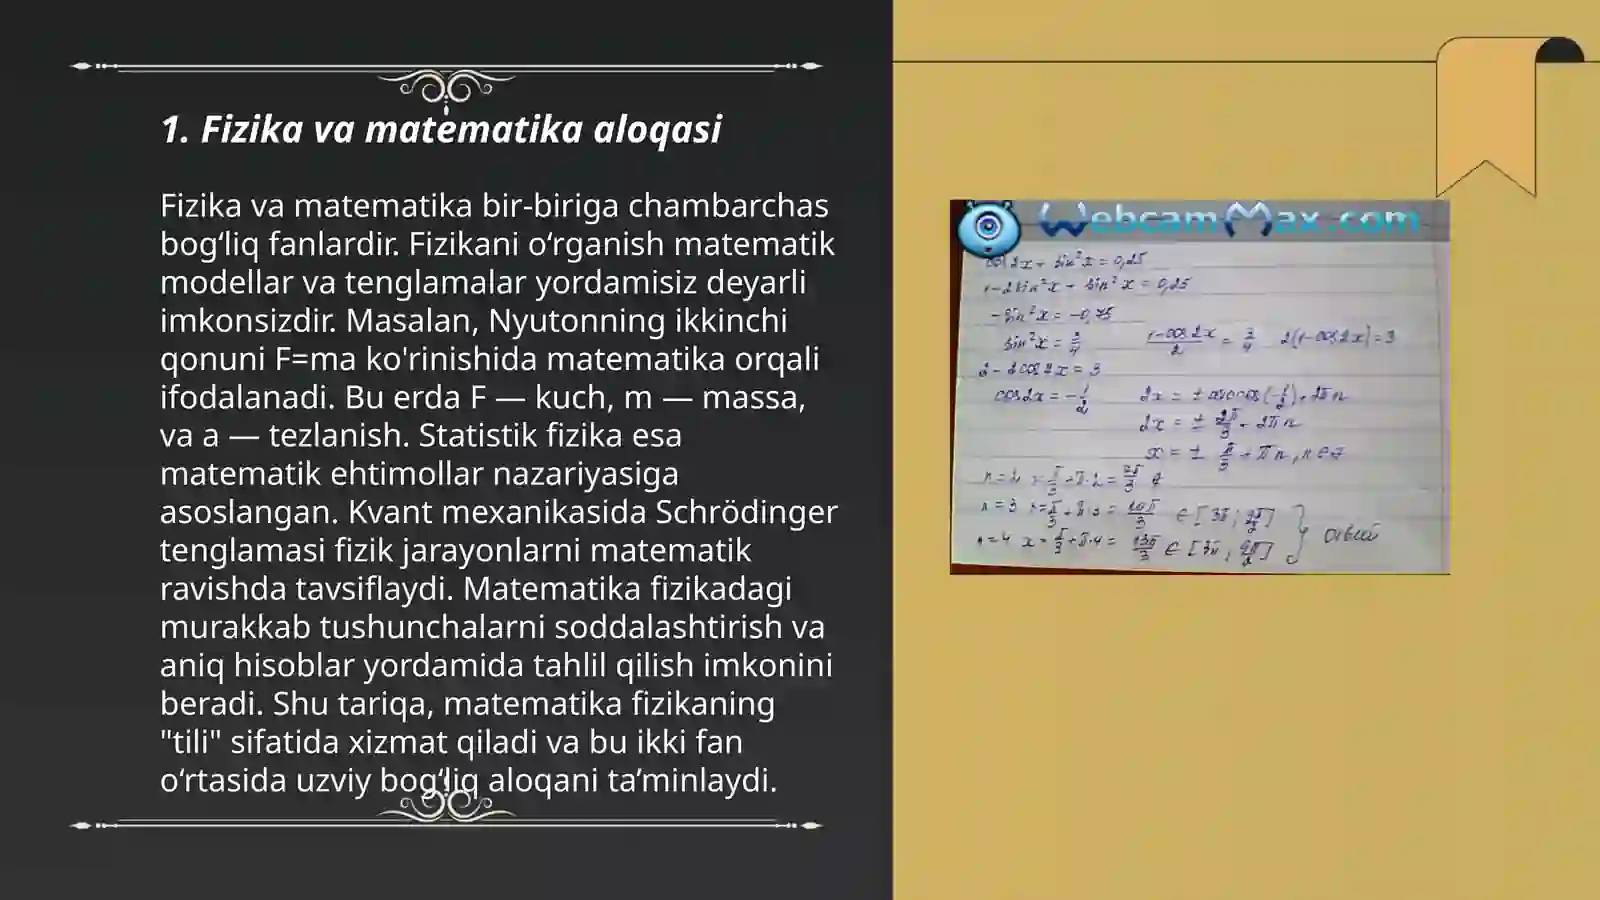 1. Fizika va matematika aloqasi
Fizika va matematika bir-biriga chambarchas
bog‘liq fanlardir. Fizikani o‘rganish matematik
modellar va tenglamalar yordamisiz deyarli
imkonsizdir. Masalan, Nyutonning ikkinchi
qonuni F=ma ko'rinishida matematika orqali
ifodalanadi. Bu erda F — kuch, m — massa,
va a — tezlanish. Statistik fizika esa
matematik ehtimollar nazariyasiga
asoslangan. Kvant mexanikasida Schrödinger
tenglamasi fizik jarayonlarni matematik
ravishda tavsiflaydi. Matematika fizikadagi
murakkab tushunchalarni soddalashtirish va
aniq hisoblar yordamida tahlil qilish imkonini
beradi. Shu tariqa, matematika fizikaning
"tili" sifatida xizmat qiladi va bu ikki fan
o‘rtasida uzviy bog‘liq aloqani ta’minlaydi.
WebcamMax.com
cos 2x + sin²x = 0,25
1-2sin²x + sin²x = 0,25
-sin²x = -0,75
sin²x = 3/4 (1-cos 2x)/2 = 3/4 2(1-cos 2x) = 3
2-2cos 2x = 3
cos 2x = -1/2 2x = ± arccos(-1/2) + 2πn
2x = ± 2π/3 + 2πn
x = ± π/3 + πn, n∈z
n=3 x=π/3+π·3 = 10π/3 ∈ [3π; 9π/2]
n=4 x=π/3+π·4 = 13π/3 ∈ [3π; 9π/2]